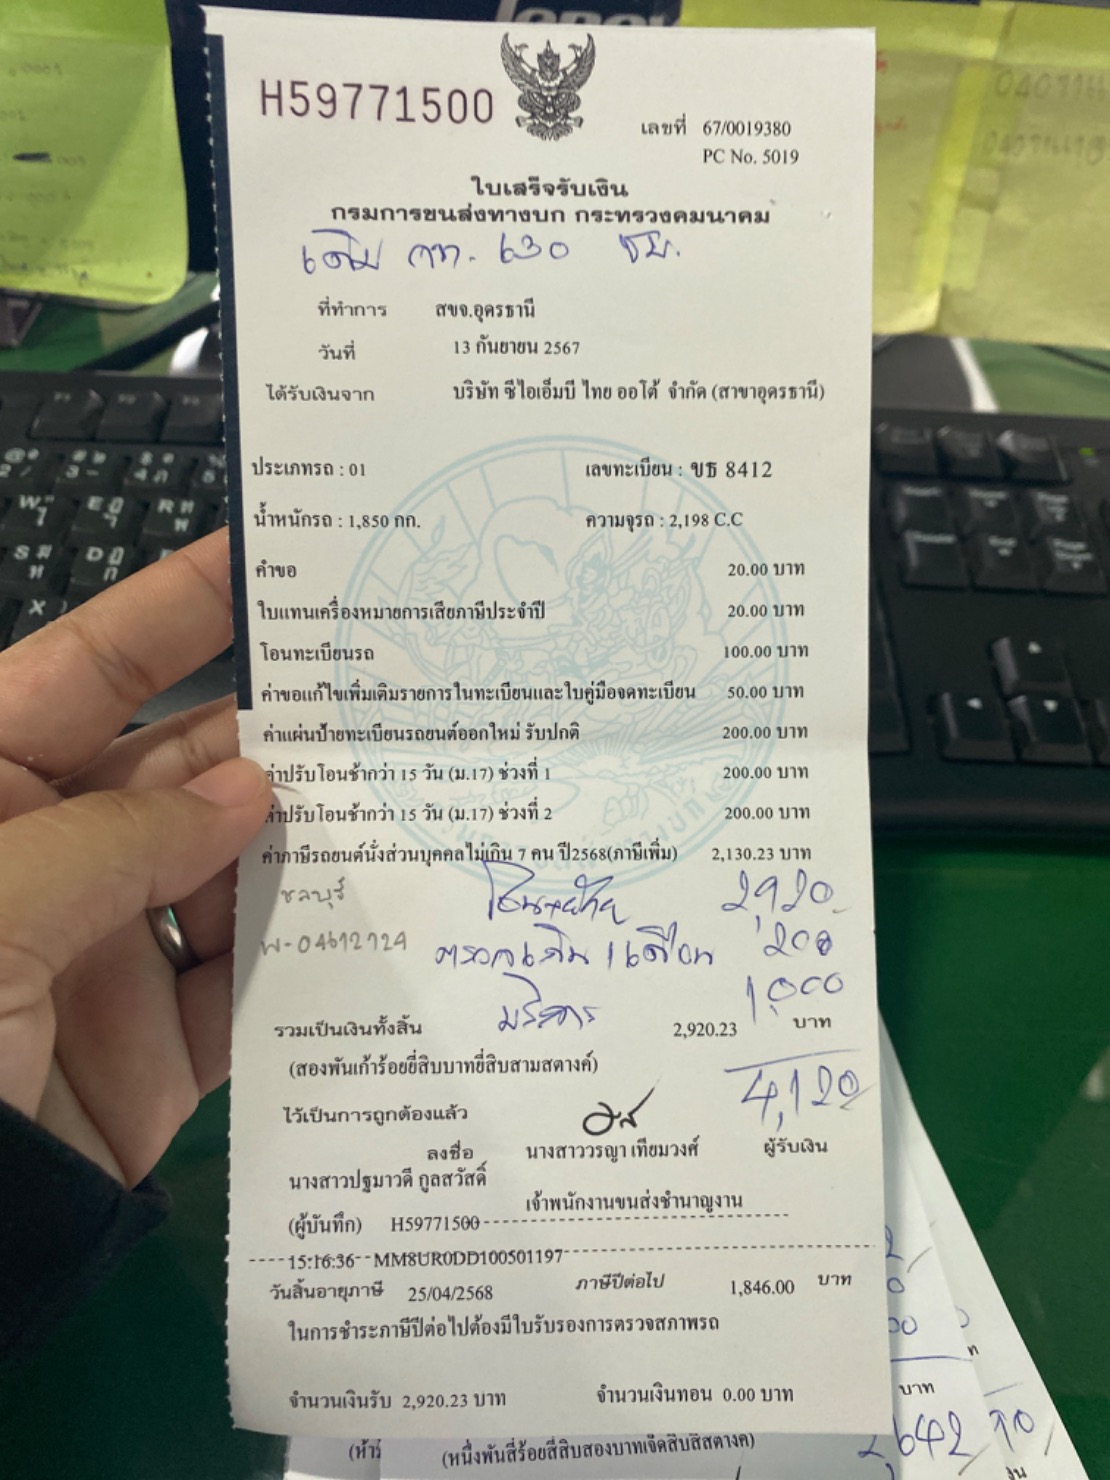 H59771500
เลขที่ 67/0019380
PC No. 5019
ใบเสร็จรับเงิน
กรมการขนส่งทางบก กระทรวงคมนาคม
เดิม กท. 630 ชม.
ที่ทำการ สขจ.อุดรธานี
วันที่ 13 กันยายน 2567
ได้รับเงินจาก บริษัท ซีไอเอ็มบี ไทย ออโต้ จำกัด (สาขาอุดรธานี)
ประเภทรถ : 01 เลขทะเบียน : ขธ 8412
น้ำหนักรถ : 1,850 กก. ความจุรถ : 2,198 C.C
คำขอ 20.00 บาท
ใบแทนเครื่องหมายการเสียภาษีประจำปี 20.00 บาท
โอนทะเบียนรถ 100.00 บาท
ค่าขอแก้ไขเพิ่มเติมรายการในทะเบียนและใบคู่มือจดทะเบียน 50.00 บาท
ค่าแผ่นป้ายทะเบียนรถยนต์ออกใหม่ รับปกติ 200.00 บาท
ค่าปรับโอนช้ากว่า 15 วัน (ม.17) ช่วงที่ 1 200.00 บาท
ค่าปรับโอนช้ากว่า 15 วัน (ม.17) ช่วงที่ 2 200.00 บาท
ค่าภาษีรถยนต์นั่งส่วนบุคคลไม่เกิน 7 คน ปี2568(ภาษีเพิ่ม) 2,130.23 บาท
ชลบุรี โอนย้าย 2,920
W-04612729 ตรวจเดิม 1 เดือน 200
บริการ 1,000
รวมเป็นเงินทั้งสิ้น 2,920.23 บาท
(สองพันเก้าร้อยยี่สิบบาทยี่สิบสามสตางค์)
4,120
ไว้เป็นการถูกต้องแล้ว
ลงชื่อ นางสาววรญา เทียมวงศ์ ผู้รับเงิน
นางสาวปฐมาวดี กูลสวัสดิ์
เจ้าพนักงานขนส่งชำนาญงาน
(ผู้บันทึก) H59771500
15:16:36 MM8UR0DD100501197
วันสิ้นอายุภาษี 25/04/2568 ภาษีปีต่อไป 1,846.00 บาท
ในการชำระภาษีปีต่อไปต้องมีใบรับรองการตรวจสภาพรถ
จำนวนเงินรับ 2,920.23 บาท จำนวนเงินทอน 0.00 บาท
บาท
(หนึ่งพันสี่ร้อยสี่สิบสองบาทเจ็ดสิบสี่สตางค์)